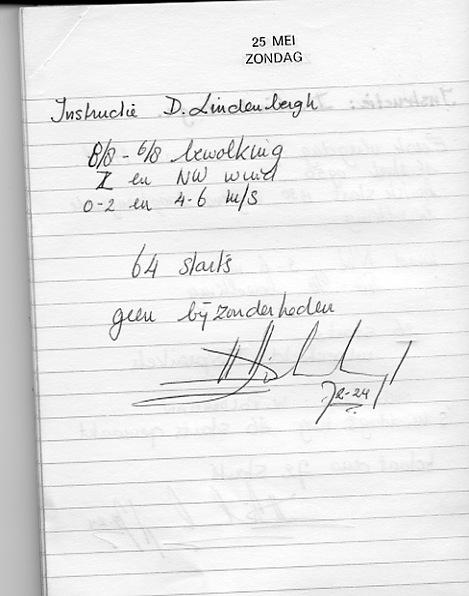 25 MEI
ZONDAG
Instructie D. Lindenbergh
8/8 - 6/8 bewolking
Z en NW wind
0-2 en 4-6 m/s
64 starts
geen bijzonderheden